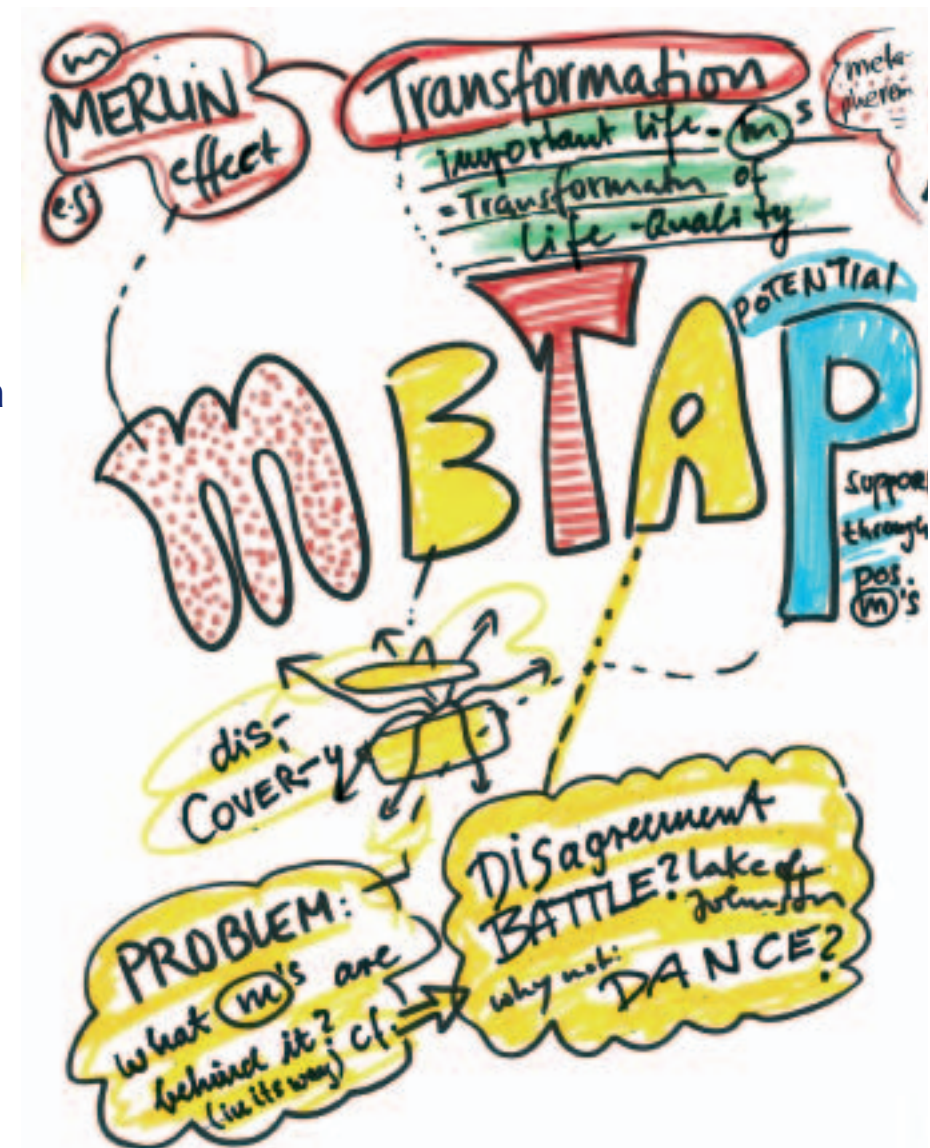 m
MERLIN
effect
e.g.
Transformation
important life-m's
=Transformatn of
Life-Quality
meta-
pheren
METAP
POTENTIAL
support
through
pos.
m's
dis-
COVER-y
PROBLEM:
what m's are
behind it?
(in its way) cf.
DISagreement
BATTLE? Lakoff
Johnson
why not:
DANCE?